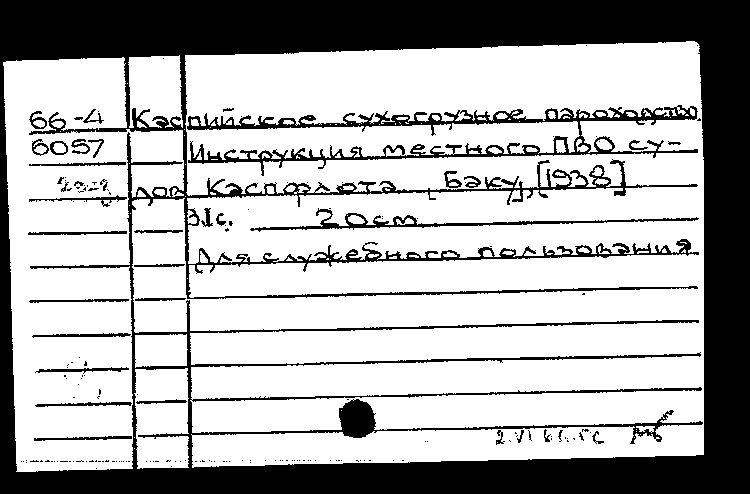 66-4 Каспийское сухогрузное пароходство
6057 Инструкция местного ПВО су-
дов Каспфлота [Баку], [1938]
31с. 20см
Для служебного пользования